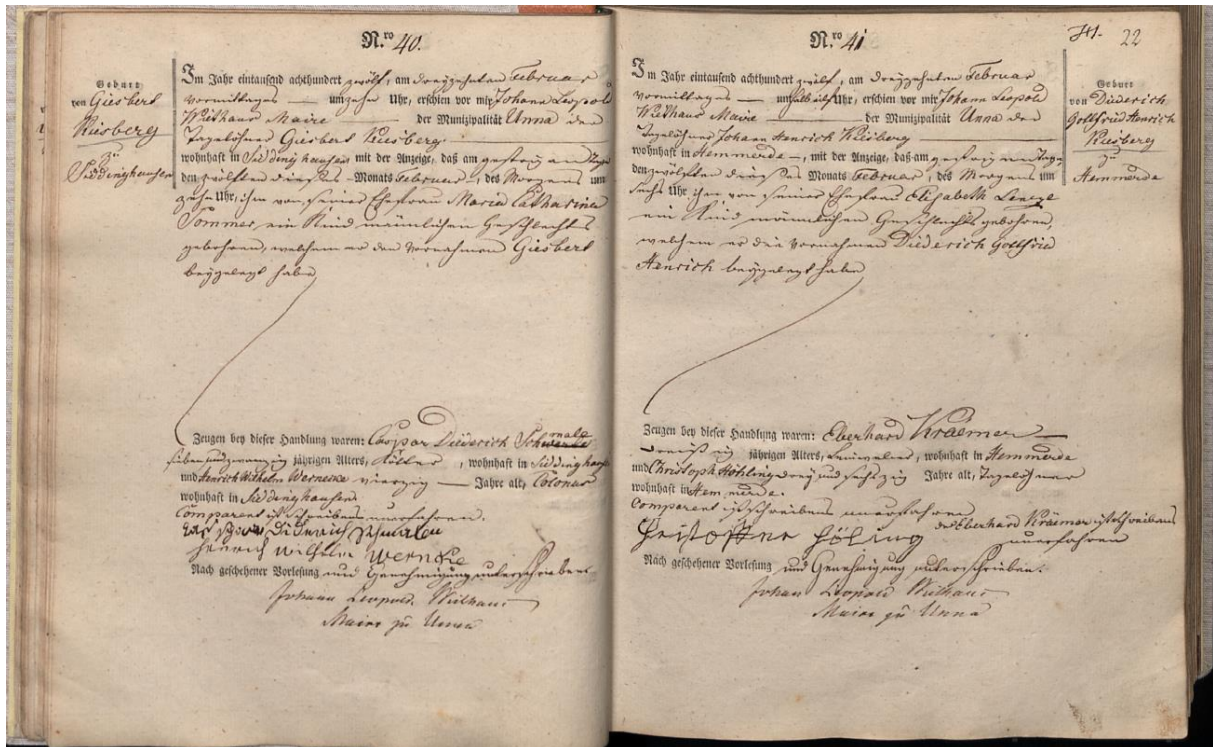 Nro 40.
Geburt
von Giesbert
Kusberg
zu
Siddinghausen
Im Jahr eintausend achthundert zwölf, am dreyzehnten Februar
vormittages — um zehn Uhr, erschien vor mir Johann Leopold
Wiethaus Maire — der Munizipalität Unna der
Tagelöhner Giesbert Kusberg
wohnhaft in Siddinghausen mit der Anzeige, daß am gestrigen Tage
den zwölften dieses Monats Februar, des Morgens um
zehn Uhr, ihm von seiner Ehefrau Maria Catharina
Sommer, ein Kind männlichen Geschlechts
gebohren, welchem er den Vornahmen Giesbert
beygelegt habe
Zeugen bey dieser Handlung waren: Caspar Diederich Schmale
siebenundzwanzig jährigen Alters, Kötter, wohnhaft in Siddinghausen
und Henrich Wilhelm Wernecke vierzig — Jahre alt, Colonus
wohnhaft in Siddinghausen.
Comparent ist schreibens unerfahren.
Diderich Schmalen
Henrich wilhelm Wernke
Nach geschehener Vorlesung und Genehmigung unterschrieben
Johann Leopold Wiethaus
Maire zu Unna
Nro 41
41. 22
Geburt
von Diederich
Gottfried Henrich
Kusberg
zu
Hemmerde
Im Jahr eintausend achthundert zwölf, am dreyzehnten Februar
vormittages — um halb elf Uhr, erschien vor mir Johann Leopold
Wiethaus Maire — der Munizipalität Unna der
Tagelöhner Johann Henrich Kusberg
wohnhaft in Hemmerde —, mit der Anzeige, daß am gestrigen Tage
den zwölften dieses Monats Februar, des Morgens um
sechs Uhr ihm von seiner Ehefrau Elisabeth
ein Kind männlichen Geschlechts gebohren,
welchem er die Vornahmen Diederich Gottfried
Henrich beygelegt habe
Zeugen bey dieser Handlung waren: Eberhard Kraemer —
dreißig jährigen Alters, wohnhaft in Hemmerde
und Christoph Höhling drey und sechszig Jahre alt, Tagelöhner
wohnhaft in Hemmerde.
Comparent ist schreibens unerfahren
der Eberhard Krämer ist schreibens
unerfahren
Christoffer Höling
Nach geschehener Vorlesung und Genehmigung unterschrieben.
Johan Leopold Wiethaus
Maire zu Unna